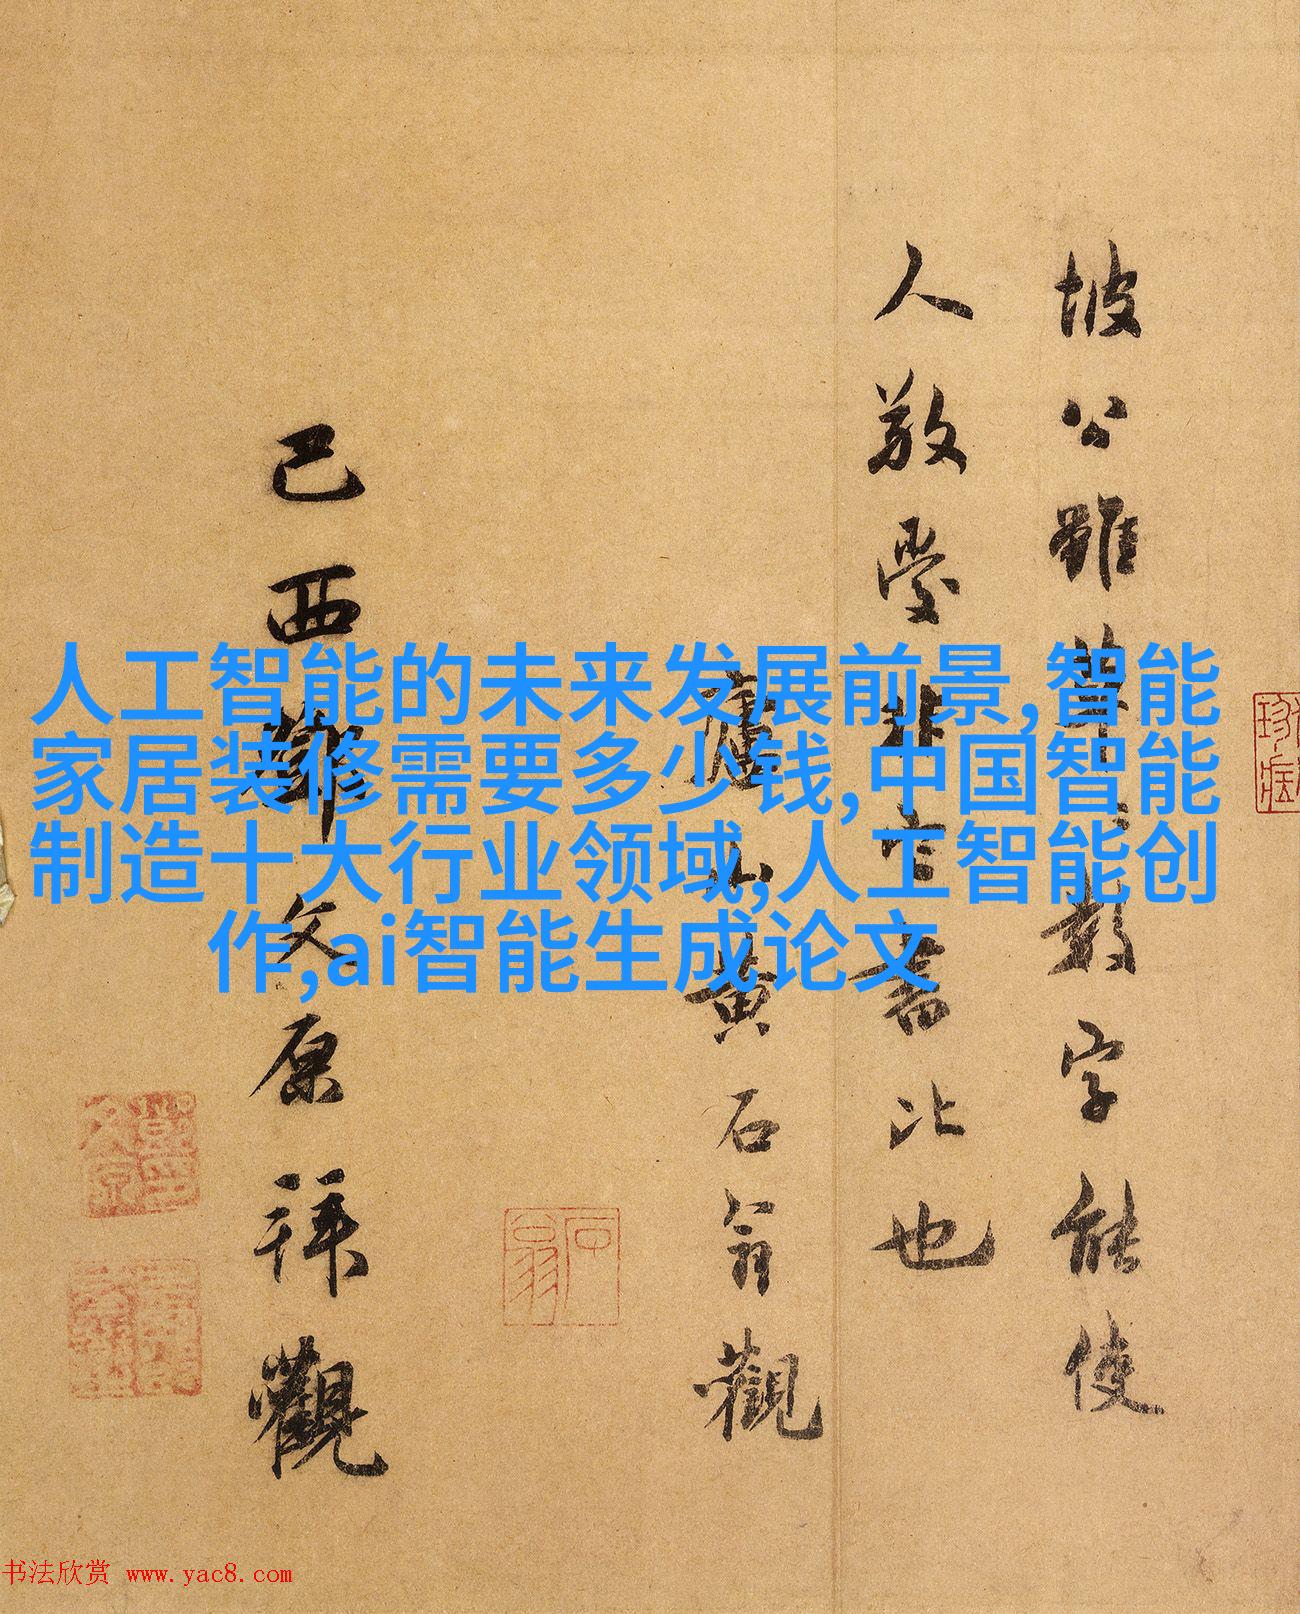 坡公雖草草數字能使
人敬愛非它書比也
廬山黄石翁觀
己酉鄧文原拜觀
人工智能的未来发展前景,智能
家居装修需要多少钱,中国智能
制造十大行业领域,人工智能创
作,ai智能生成论文
石翁
书法欣赏 www.yac8.com